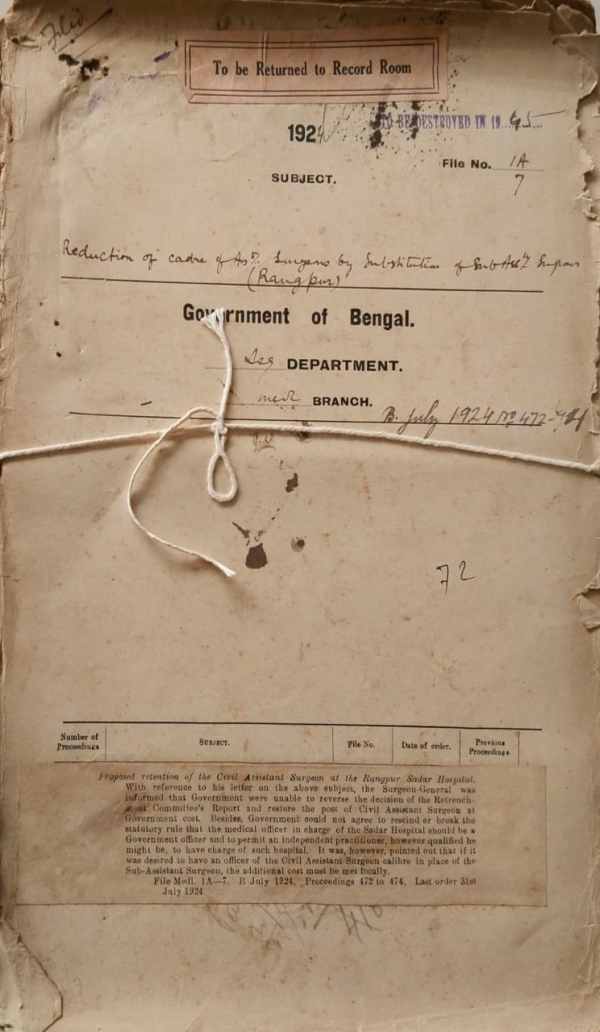 Filed
To be Returned to Record Room
TO BE DESTROYED IN 19...45...
1924
File No. 1A
7
SUBJECT.
Reduction of cadre of Asst. Surgeons by Substitution of Sub Asst. Surgeons
(Rangpur)
Government of Bengal.
DEPARTMENT.
BRANCH.
B. July 1924 No 472-74
72
Number of Proceedings. SUBJECT. File No. Date of order. Previous Proceedings.
Proposed retention of the Civil Assistant Surgeon at the Rangpur Sadar Hospital.
With reference to his letter on the above subject, the Surgeon-General was
informed that Government were unable to reverse the decision of the Retrench-
ment Committee's Report and restore the post of Civil Assistant Surgeon at
Government cost. Besides, Government could not agree to rescind or break the
statutory rule that the medical officer in charge of the Sadar Hospital should be a
Government officer and to permit an independent practitioner, however qualified he
might be, to have charge of such hospital. It was, however, pointed out that if it
was desired to have an officer of the Civil Assistant Surgeon calibre in place of the
Sub-Assistant Surgeon, the additional cost must be met locally.
File Medl. 1A—7. B July 1924. Proceedings 472 to 474. Last order 31st
July 1924.